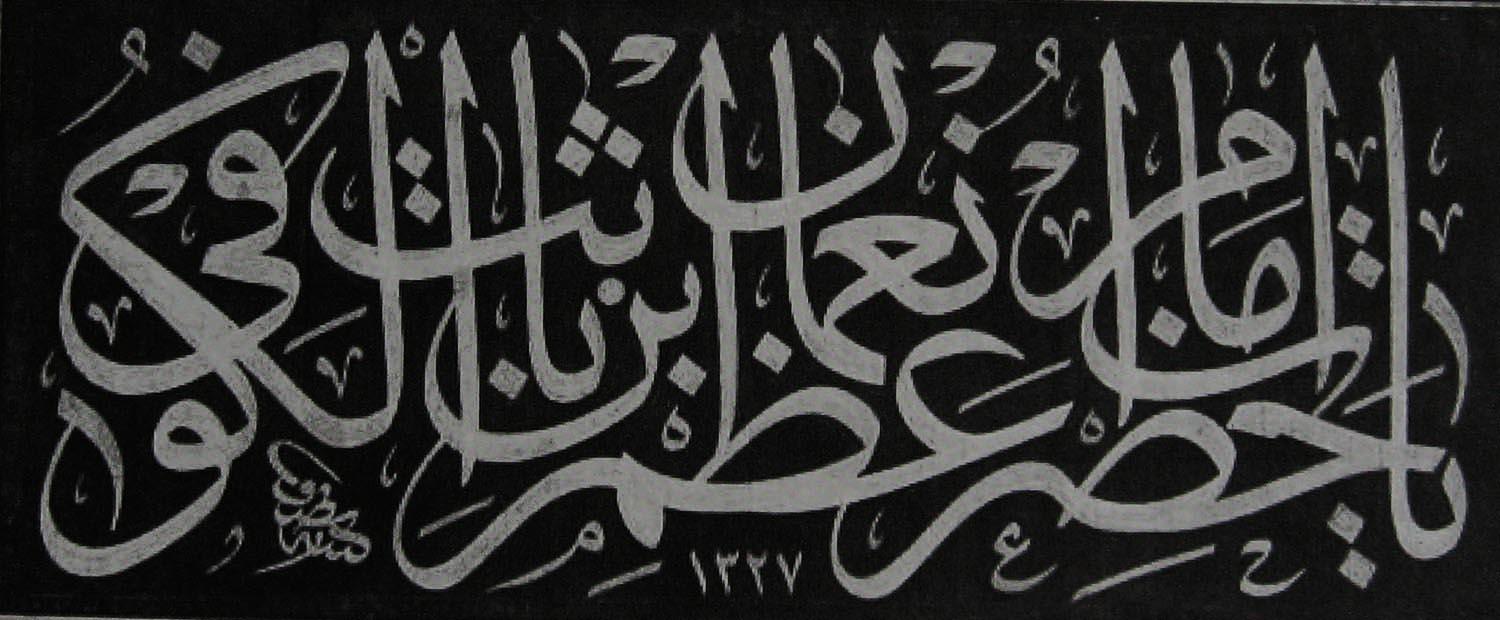 يا حضرت امام اعظم نعمان بن ثابت الكوفي
١٣٢٧